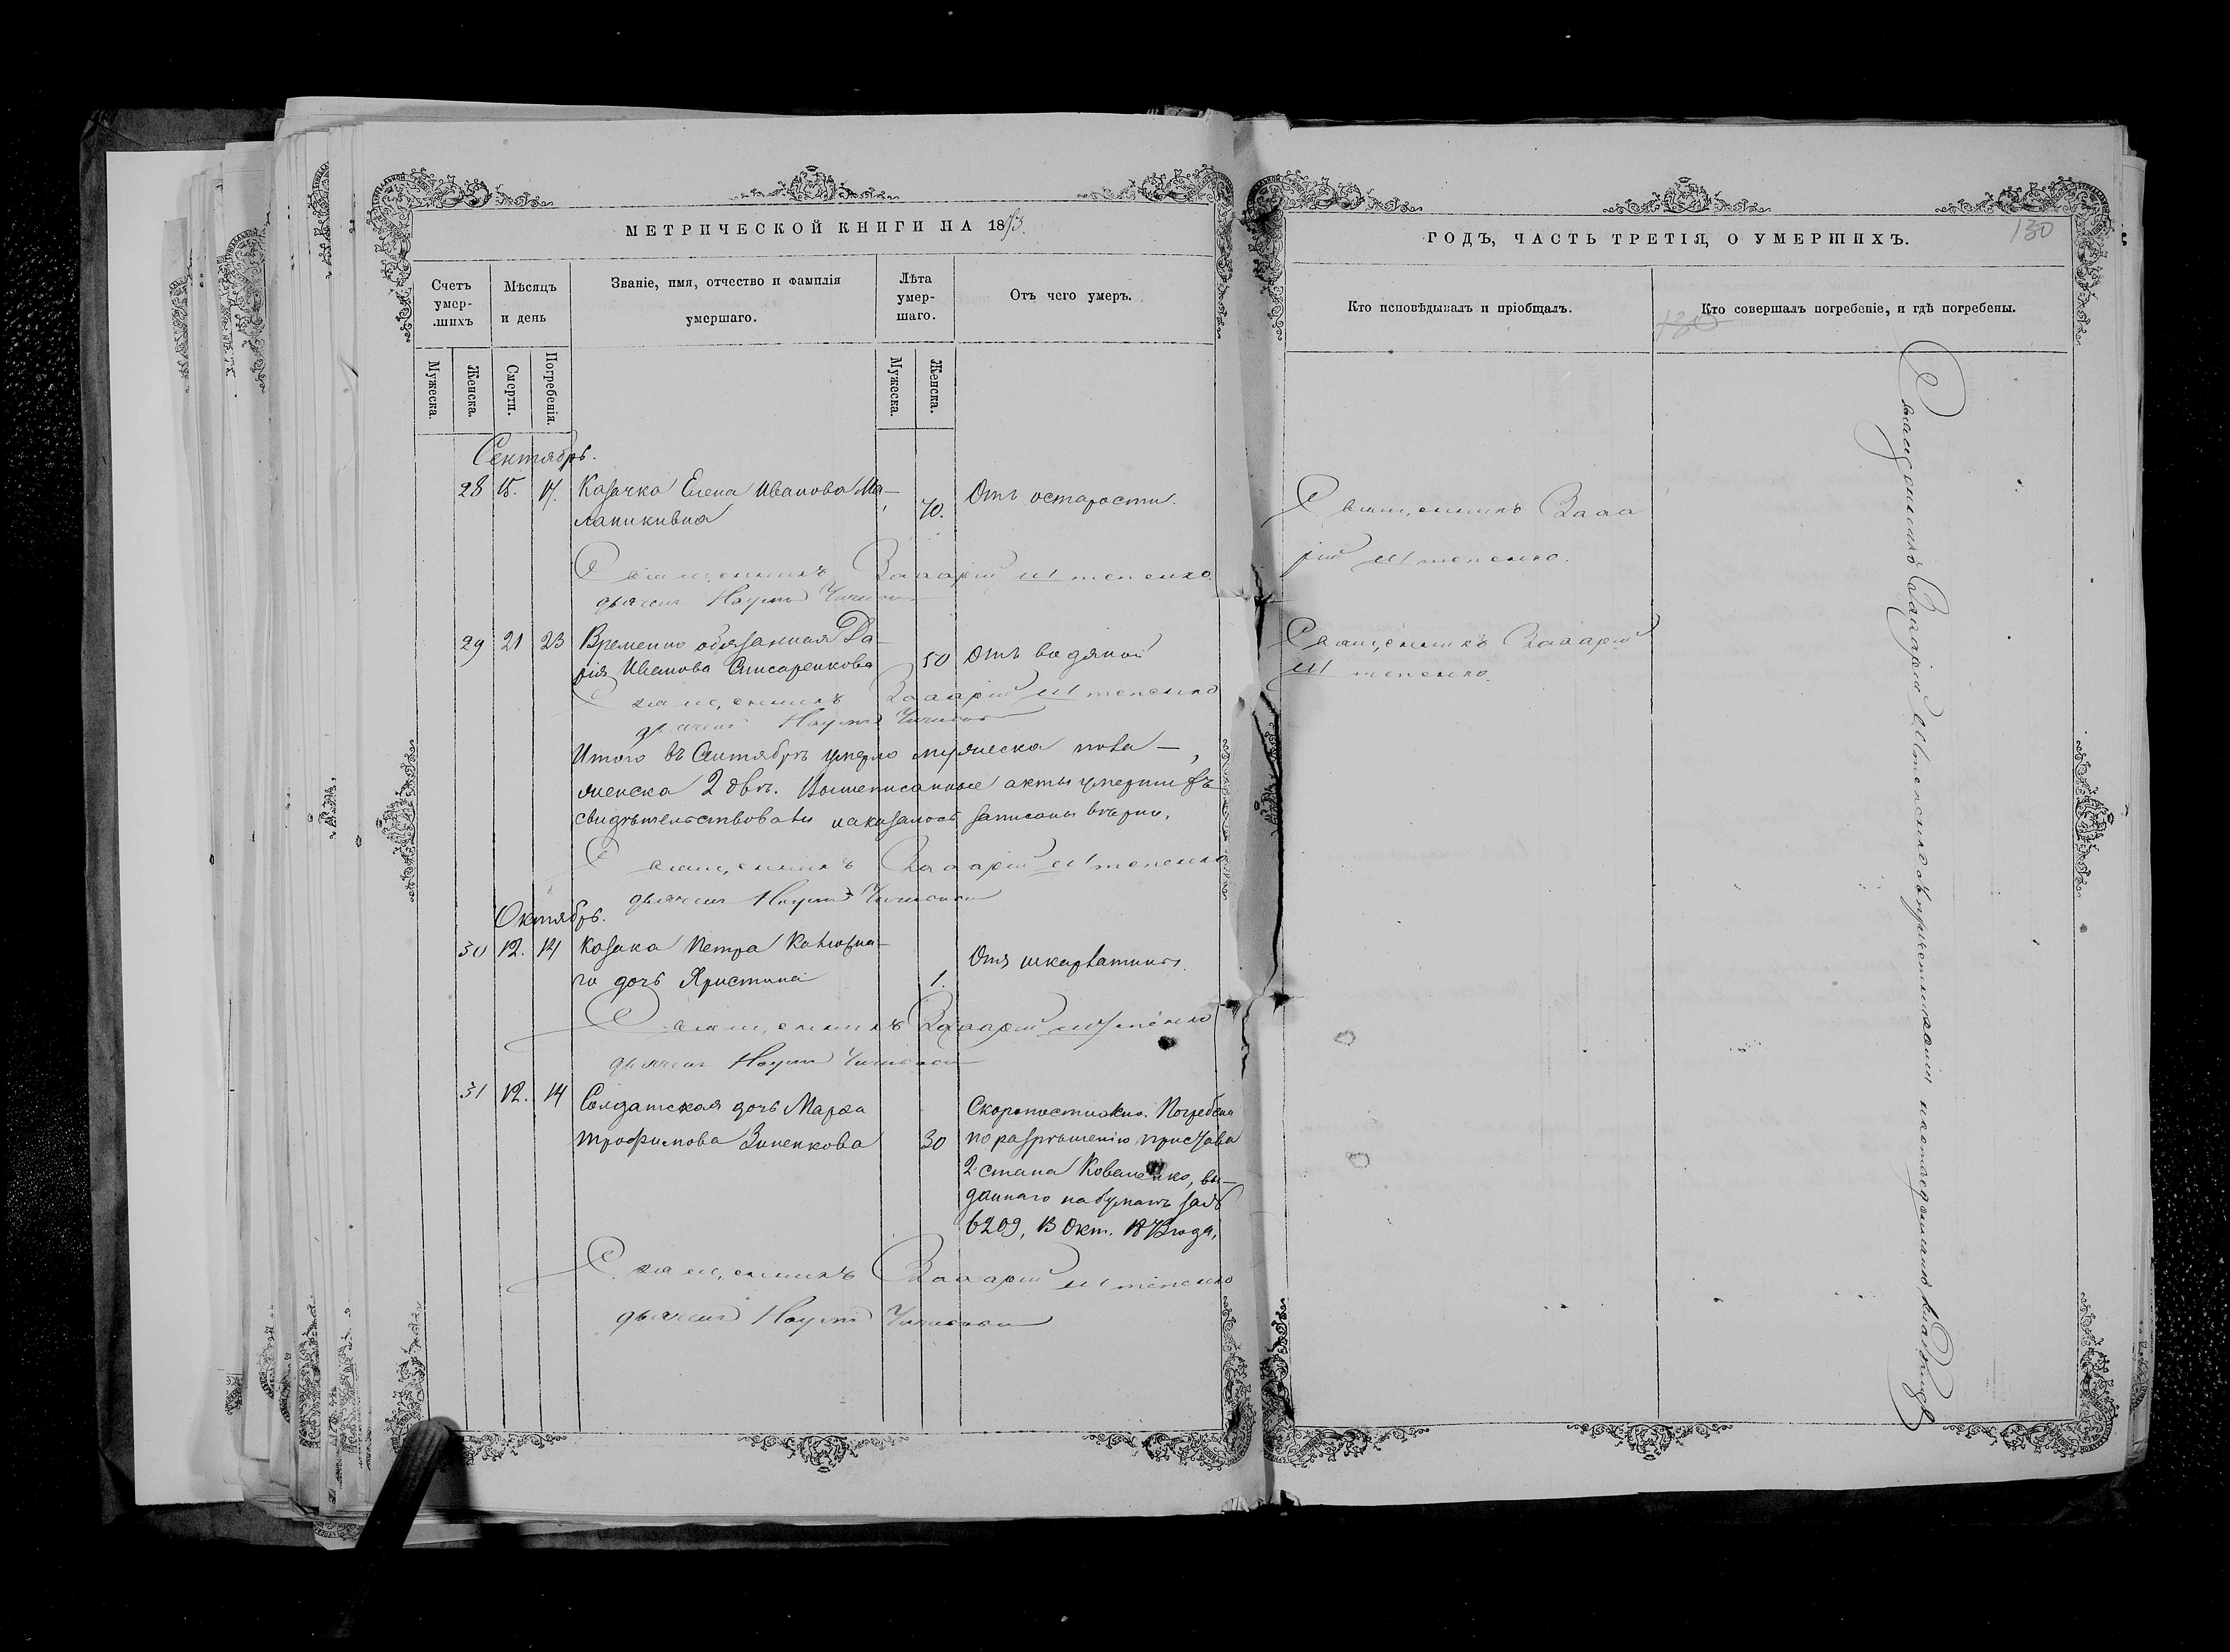 МЕТРИЧЕСКОЙ КНИГИ НА 1873.
Счетъ умершихъ
Мѣсяцъ и день
Званіе, имя, отчество и фамилія умершаго.
Лѣта умершаго.
Отъ чего умеръ.
Мужеска.
Женска.
Смерти.
Погребенія.
Мужеска.
Женска.
Сентябрь.
28 15. 17. Казачка Елена Иванова Ма-
70. Отъ старости.
Священникъ Захарій Штепенко.
дьячокъ Наумъ
29 21 23 Временно обязанная Да-
рія Иванова Слисаренкова 50 Отъ водяной
Священникъ Захарій Штепенко
дьячокъ Наумъ
Итого въ Сентябрѣ умерло мужеска пола —,
женска 2 двѣ. Вышеписанные акты умершихъ
свидѣтельствовали и оказалось записаны вѣрно.
Священникъ Захарій Штепенко
дьячокъ Наумъ
Октябрь.
30 12. 14 Козака Петра
го дочь Христина 1. Отъ шкарлатины.
Священникъ Захарій Штепенко
дьячокъ Наумъ
31 12. 14 Солдатская дочь Марѳа
Трофимова Зиненкова 30
Скоропостижно. Погребена
по разрѣшенію пристава
2 стана Коваленко, вы-
даннаго на бумагѣ за №
6209, 13 Окт. 1873 года.
Священникъ Захарій Штепенко
дьячокъ Наумъ
ГОДЪ, ЧАСТЬ ТРЕТІЯ, О УМЕРШИХЪ.
130
Кто исповѣдывалъ и пріобщалъ.
Кто совершалъ погребеніе, и гдѣ погребены.
130
Священникъ Заха
рій Штепенко.
Священникъ Захарій
Штепенко.
Священникъ Захарій Штепенко съ причетниками на отведенномъ кладбищѣ